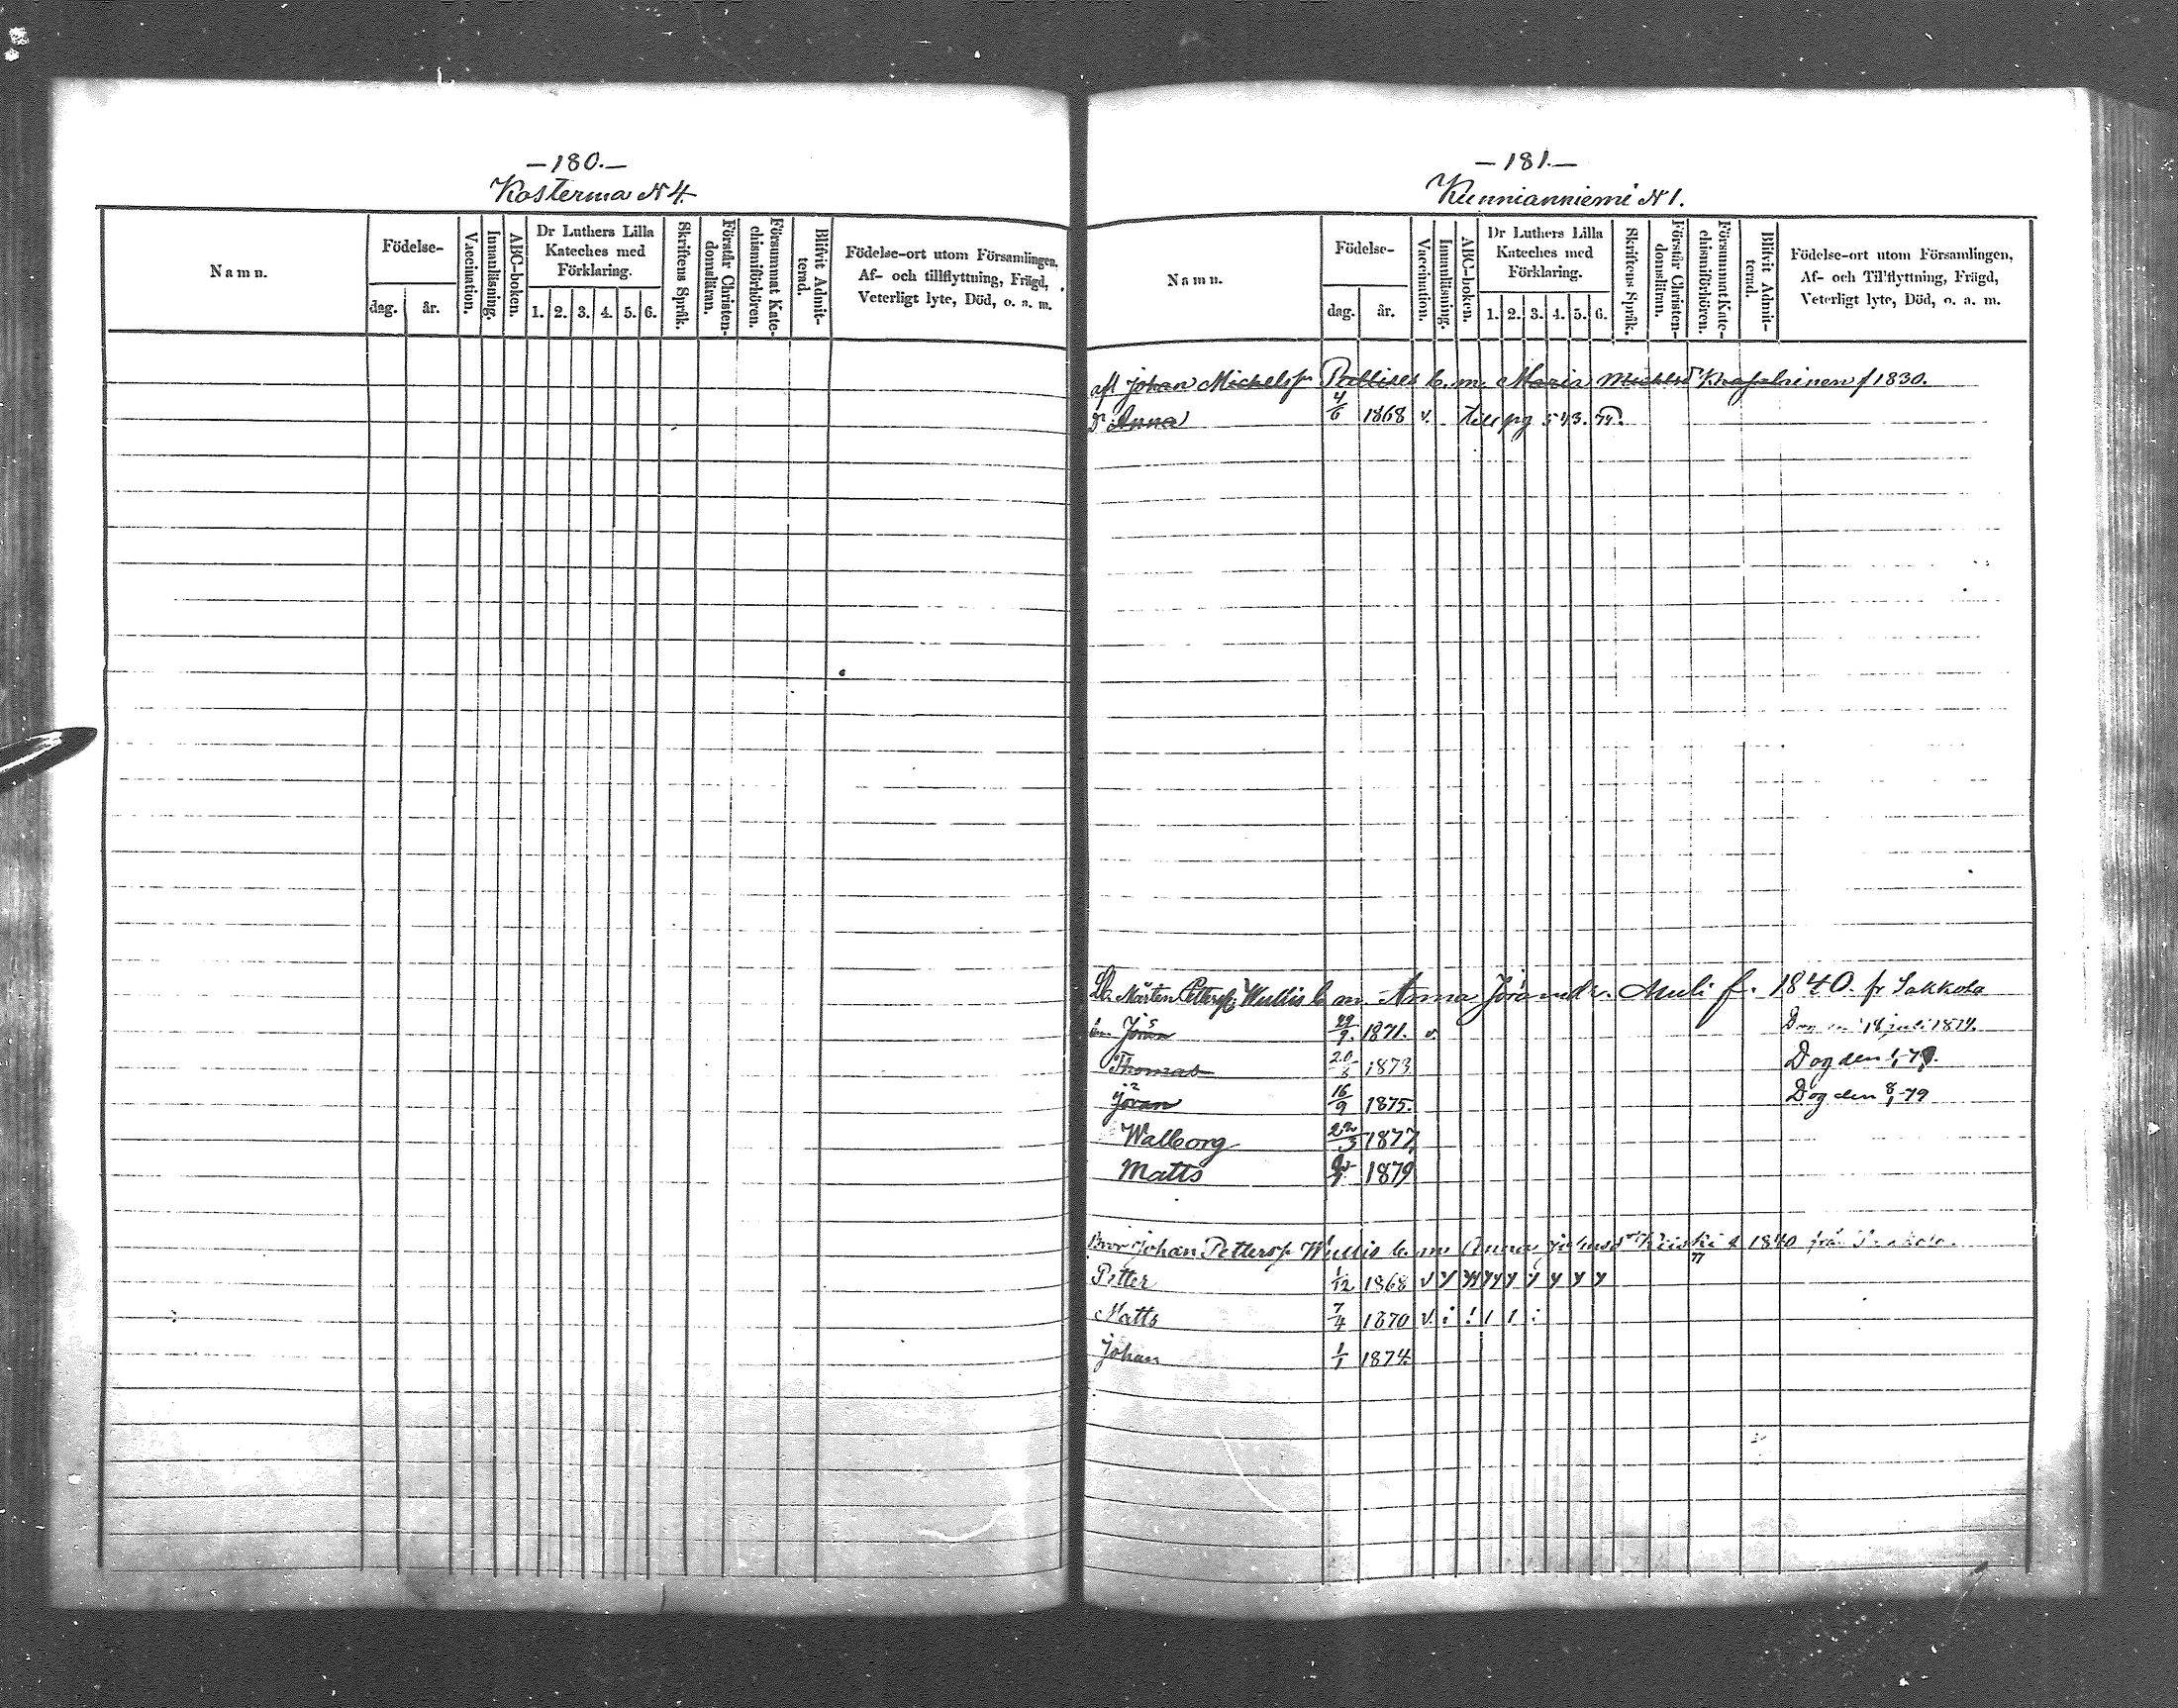 —180.—
Kosterma N 4.
Namn.
Födelse-
dag.
år.
Vaccination.
Innanläsning.
ABC-boken.
Dr Luthers Lilla
Kateches med
Förklaring.
1. 2. 3. 4. 5. 6.
Skriftens Språk.
Förstår Christen-
domsläran.
Försummat Kate-
chismiförhören.
Blifvit Admit-
terad.
Födelse-ort utom Församlingen,
Af- och tillflyttning, Frägd,
Veterligt lyte, Död, o. a. m.
—181.—
Kunnianniemi N 1.
Namn.
Födelse-
dag.
år.
Vaccination.
Innanläsning.
ABC-boken.
Dr Luthers Lilla
Kateches med
Förklaring.
1. 2. 3. 4. 5. 6.
Skriftens Språk.
Förstår Christen-
domsläran.
Försummat Kate-
chismiförhören.
Blifvit Admit-
terad.
Födelse-ort utom Församlingen,
Af- och Tillflyttning, Frägd,
Veterligt lyte, Död, o. a. m.
Johan Michelsp m. Maria f 1830.
Anna 4/6 1868 v. till pg 543.
Mårten Pettersp Wullis m Anna Muli f. 1840. fr Sakkola
Jöran 1871. v. 18 juli 1874.
Thomas 1873 Dog den
Jöran 16/9 1875. Dog den 8/1 -79
Walborg 22/3 1877
Matts 1879
Bror Johan Pettersp Wullis m Anna 1840 från
Petter 1/12 1868 v y y y y y y y y
Matts 7/4 1870 v
Johan 1/1 1874.